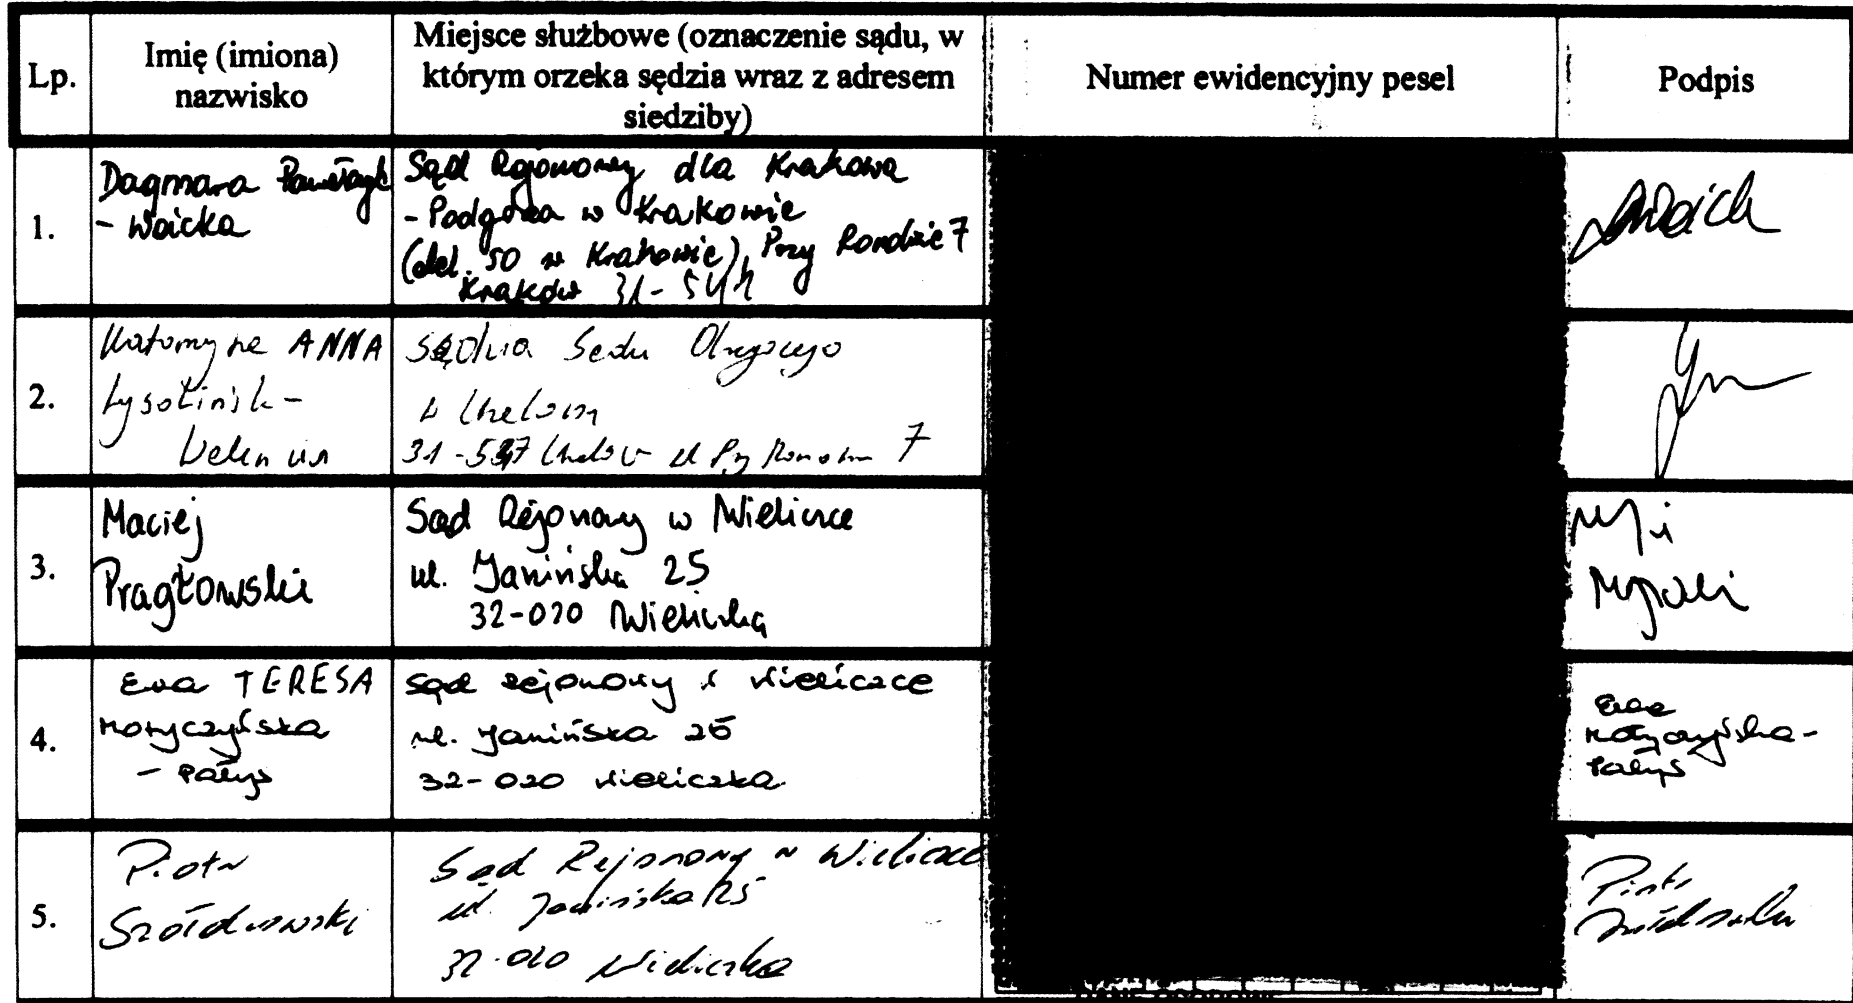 Lp.
Imię (imiona)
nazwisko
Miejsce służbowe (oznaczenie sądu, w
którym orzeka sędzia wraz z adresem
siedziby)
Numer ewidencyjny pesel
Podpis
1.
Dagmara Pawełczyk
- Woicka
Sąd Rejonowy dla Krakowa
- Podgórza w Krakowie
(del. SO w Krakowie), Przy Rondzie 7
Kraków 31-547
2.
Katarzyna ANNA
Sędzia Sądu Okręgowego
w Krakowie
31-547 Kraków ul Przy Rondzie 7
3.
Maciej
Pragłowski
Sąd Rejonowy w Wieliczce
ul. Janińska 25
32-020 Wieliczka
4.
Ewa TERESA
Motyczyńska
- Pałys
Sąd Rejonowy w Wieliczce
ul. Janińska 25
32-020 Wieliczka
Ewa
Motyczyńska-
Pałys
5.
Piotr
Szołdrowski
Sąd Rejonowy w Wieliczce
ul. Janińska 25
32-020 Wieliczka
Piotr